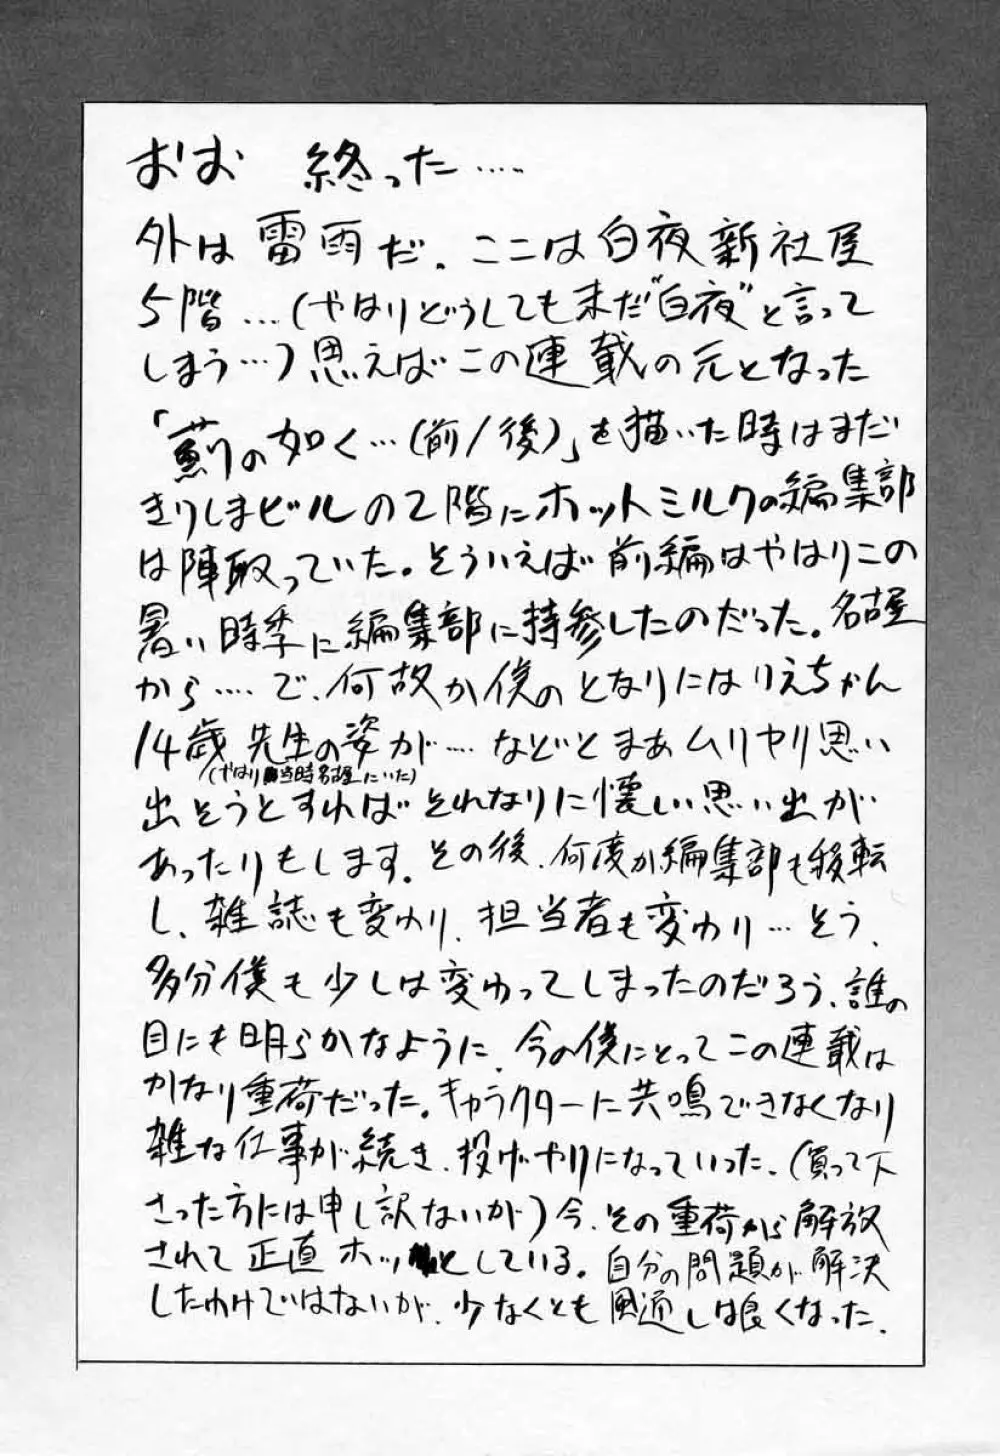 おお 終った‥‥
外は雷雨だ。ここは白夜新社屋
5階…(やはりどうしても未だ“白夜”と言って
しまう…)思えばこの連載の元となった
「薊の如く…(前/後)」を描いた時はまだ
きりしまビルの2階にホットミルクの編集部
は陣取っていた。そういえば前編はやはりこの
暑い時季に編集部に持参したのだった。名古屋
から‥‥で、何故か僕のとなりにはりえちゃん
14歳先生の姿が‥‥などとまあムリヤリ思い
(やはり当時名古屋にいた)
出そうとすればそれなりに懐しい思い出が
あったりもします。その後、何度か編集部も移転
し、雑誌も変わり、担当者も変わり…そう、
多分僕も少しは変わってしまったのだろう、誰の
目にも明らかなように、今の僕にとってこの連載は
かなり重荷だった。キャラクターに共鳴できなくなり
雑な仕事が続き、投げやりになっていった。(買って下
さった方には申し訳ないが)今、その重荷から解放
されて正直ホッとしている。自分の問題が解決
したわけではないが、少なくとも風通しは良くなった。